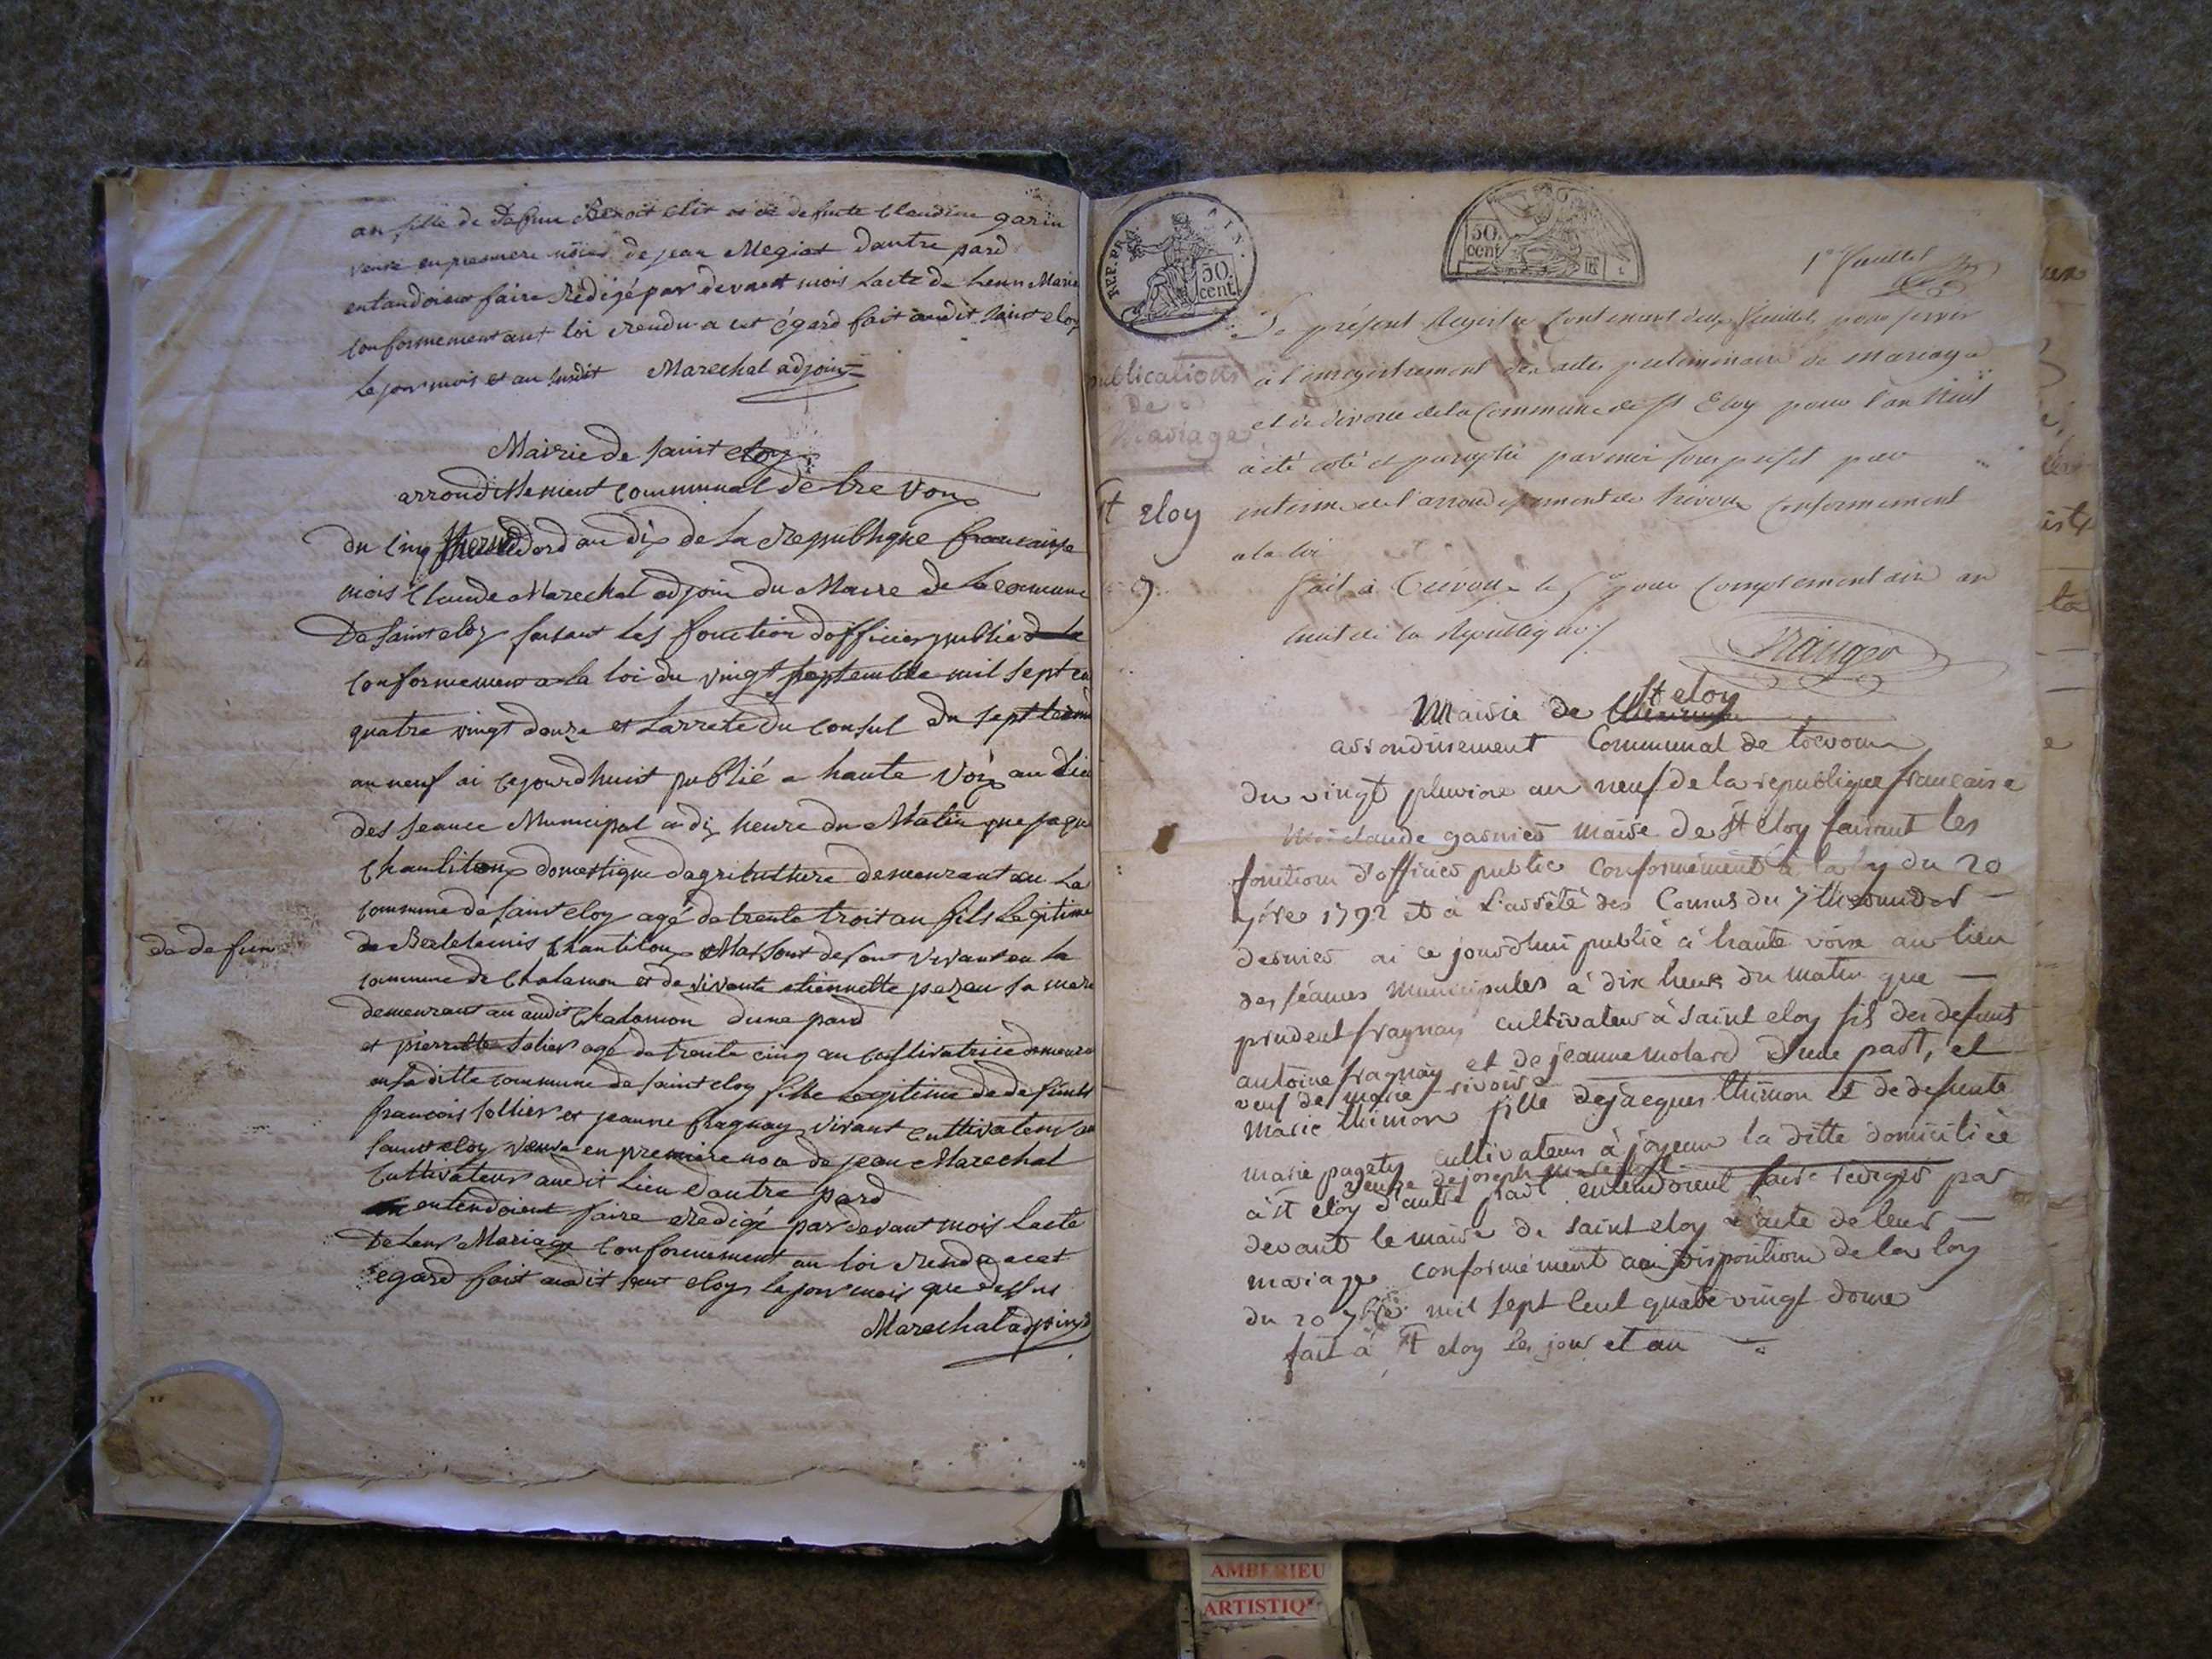 an fille de defun Benoit clit et de defunte Claudine garin
veuve en premiere noies de jean Megiat dautre pard
entandoient faire Redigé par devant mois Lacte de Leur Maria
conformement aut loi rendu a cet égard fait audit Saint eloy
le jour mois et an susdit Marechal adjoint
Mairie de saint eloy
arrondissement communal de tre voux
du cinq thermidord an dix de la republique francaisse
mois Claude Marechal adjoin du Maire de la comune
De Saint eloy faisant les fonction dofficier public de la
conformement a la loi du vingt septembre mil sept cen
quatre vingt douze et Larrete du Consul du sept termi
an neuf ai cejourdhuit publié a haute voix au lieu
des seance Municipal a dix heure du Matin que jaque
Chantiton domestique dagriculture demeurant en la
commune de saint eloy agé de trente troit an fils Legitime
de defun
de Bertelemis Chantiton Masson vivant en la
commune de Chalamon et de vivante etiennette pazeu sa mere
demeurant au audit Chalamon dune pard
et pierrette Solier agé de trente cinq an cultivatrice demeura
en la ditte commune de saint eloy fille Legitime de defunts
francois Sollier et jeanne fragnay vivant cultivateur au
Saint eloy veuve en premiere noce de jean Marechal
Cultivateur audit Lieu dautre pard
entendoient faire redigé par devant mois Lacte
De Leur Mariage Conformement au loi rendu a cet
egard fait audit saint eloy le jour mois que dessus
Marechal adjoint
REP. FRA.
50. cent.
50. cent
1er feuillet
publications
de
Mariage
St eloy
9
Le présent Registre Contenant deux feuillets pour servir
à l'enregistrement des actes préliminaires de mariage
et de divorce de la Commune de St Eloy pour l'an neuf
a été coté et paraphé par moi sous préfet par
interim de l'arrondissement de Trévoux Conformement
a la loi
fait à Trévoux le 5e jour Complementaire an
huit de la Republique
Mairie de St eloy
arrondissement Communal de trevoux
du vingt pluviose an neuf de la republique francaise
Moi claude garnier maire de St eloy faisant les
fonctions d'officier public Conformément à la loy du 20
7bre 1792 et à L'arrêté des Consuls du 7 thermidor
dernier ai ce jourd'hui publié à haute voix au lieu
des séances municipales à dix heures du matin que
prudent fragnay cultivateur à saint eloy fils des defunts
antoine fragnay et de jeanne molard d'une part, et
veuf de marie rivoire
marie thimon fille de jacques thimon et de defunte
marie pagety cultivateurs à joyeux la ditte domiciliée
veuve de joseph marechal
à St eloy d'autre part entendoient faire rediger par
devant le maire de saint eloy l'acte de leur
mariage conformément aux dispositions de la loy
du 20 7bre mil sept cent quatre vingt douze
fait à St eloy les jour et an
AMBERIEU
ARTISTIQ